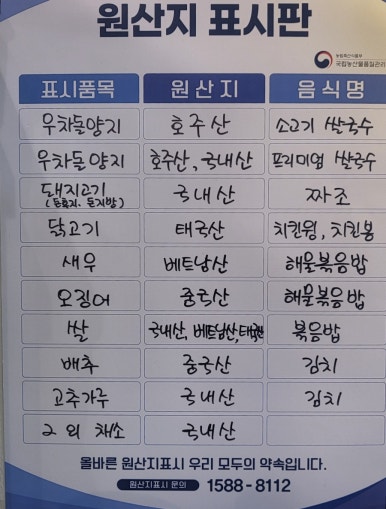 원산지 표시판
농림축산식품부
국립농산물품질관리
표시품목 원산지 음식명
우차돌양지 호주산 소고기 쌀국수
우차돌양지 호주산, 국내산 프리미엄 쌀국수
돼지고기 국내산 짜조
(돈후지, 돈지방)
닭고기 태국산 치킨윙, 치킨봉
새우 베트남산 해물볶음밥
오징어 중국산 해물볶음밥
쌀 국내산, 베트남산, 태국산 볶음밥
배추 중국산 김치
고추가루 국내산 김치
그 외 채소 국내산
올바른 원산지표시 우리 모두의 약속입니다.
원산지표시 문의 1588-8112